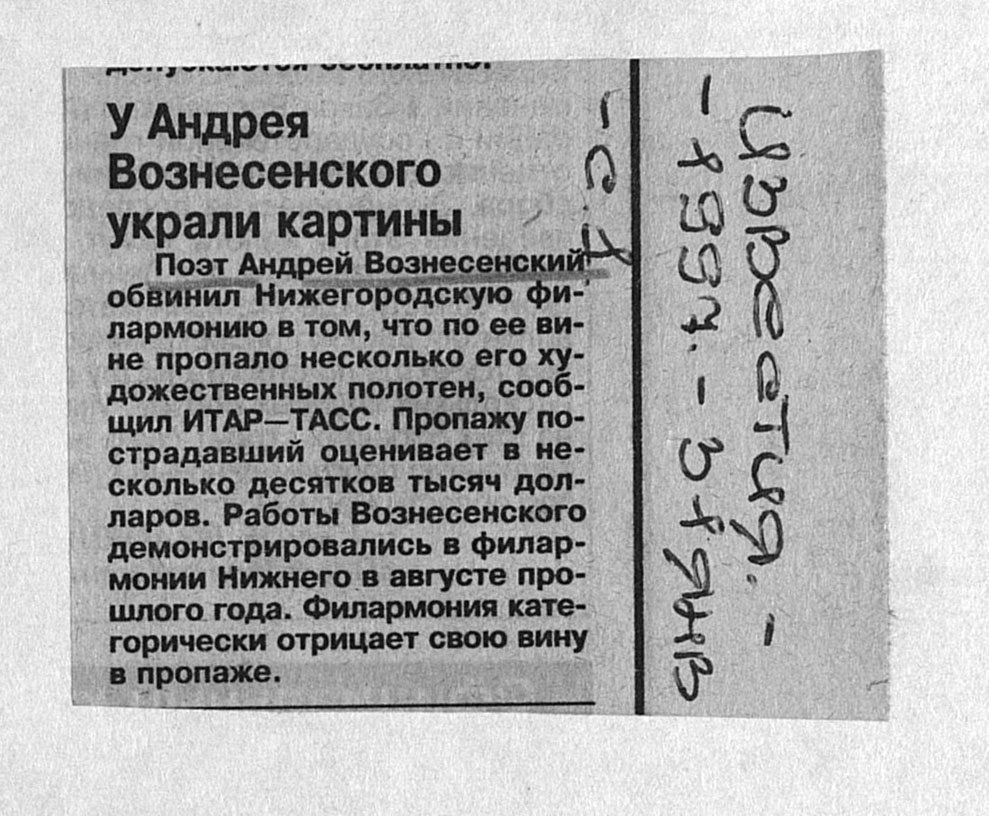 допускаются бесплатно.
У Андрея
Вознесенского
украли картины
Поэт Андрей Вознесенский
обвинил Нижегородскую фи-
лармонию в том, что по ее ви-
не пропало несколько его ху-
дожественных полотен, сооб-
щил ИТАР—ТАСС. Пропажу по-
страдавший оценивает в не-
сколько десятков тысяч дол-
ларов. Работы Вознесенского
демонстрировались в филар-
монии Нижнего в августе про-
шлого года. Филармония кате-
горически отрицает свою вину
в пропаже.
Известия. -
- 1997. - 31 янв
- С. 1